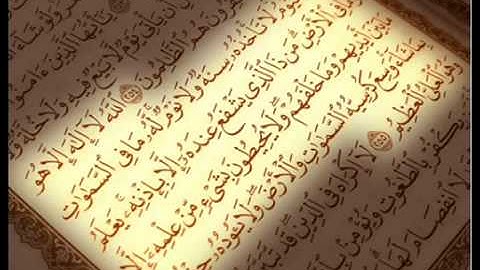 يَٰٓأَيُّهَا ٱلَّذِينَ ءَامَنُوٓا۟
يَأْتِىَ يَوْمٌ لَّا بَيْعٌ فِيهِ وَلَا خُلَّةٌ
هُمُ ٱلظَّٰلِمُونَ ٢٥٤ ٱللَّهُ لَآ إِلَٰهَ إِلَّا هُوَ
تَأْخُذُهُۥ سِنَةٌ وَلَا نَوْمٌ لَّهُۥ مَا فِى ٱلسَّمَٰوَٰتِ
فِى ٱلْأَرْضِ مَن ذَا ٱلَّذِى يَشْفَعُ عِندَهُۥٓ إِلَّا بِإِذْنِهِۦ يَعْلَمُ
أَيْدِيهِمْ وَمَا خَلْفَهُمْ وَلَا يُحِيطُونَ بِشَىْءٍ مِّنْ عِلْمِهِۦٓ إِلَّا
شَآءَ وَسِعَ كُرْسِيُّهُ ٱلسَّمَٰوَٰتِ وَٱلْأَرْضَ وَلَا يَـُٔودُهُۥ
وَهُوَ ٱلْعَلِىُّ ٱلْعَظِيمُ ٢٥٥ لَآ إِكْرَاهَ فِى ٱلدِّينِ قَد تَّبَيَّنَ
يَكْفُرْ بِٱلطَّٰغُوتِ وَيُؤْمِنۢ
لَا ٱنفِصَامَ لَهَا